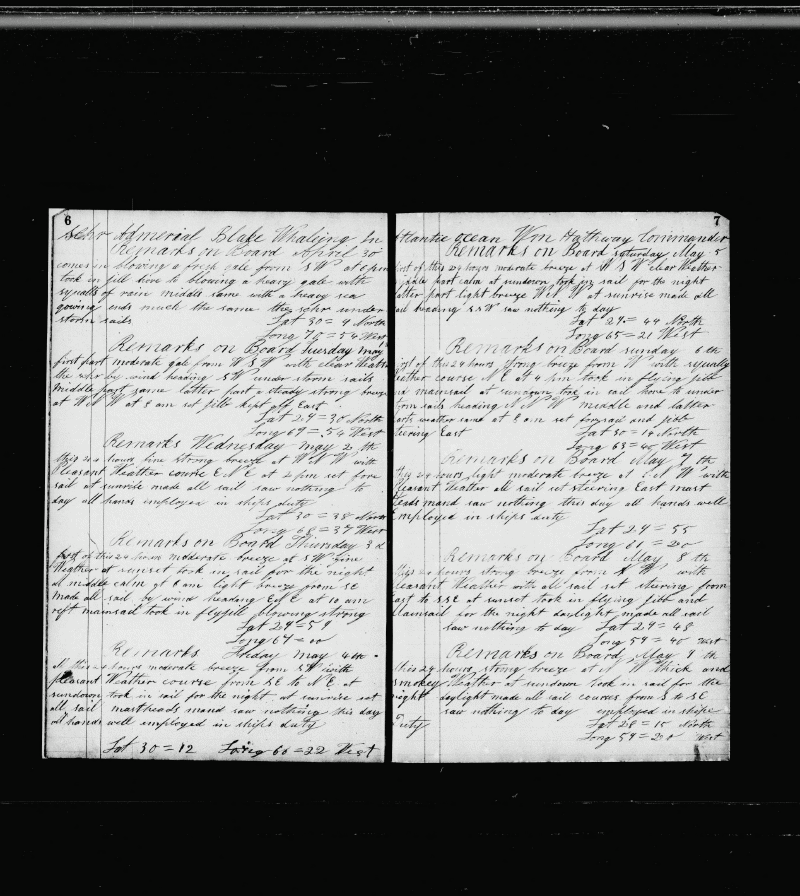 6
Schr Admerial Blake Whaling In
Remarks on Board April 30
comes in blowing a fresh gale from SW at 6 pm
took in jill hove to blowing a heavy gale with
squalls of rain middle same with a heavy sea
going ends much the same the schr under
storm sails
Lat 30 = 9 North
Long 70 = 54 West
Remarks on Board Tuesday May
first part moderate gale from WSW with clear Weather
the schr by wind heading SW under storm sails
middle part same latter part a steady strong breeze
at WNW at 8 am set jibb kept off East
Lat 29 = 30 North
Long 69 = 54 West
Remarks Wednesday May 2 th
this 24 hours fine strong breeze at WNW with
Pleasant Weather course ESE at 2 pm set fore
sail at sunrise made all sail saw nothing to
day all hands employed in ships duty
Lat 30 = 38 North
Long 68 = 37 West
Remarks on Board Thursday 3 d
first of this 24 hours moderate breeze at SW fine
Weather at sunset took in sail for the night
at middle calm at 8 am light breeze from SE
made all sail by wind heading ENE at 10 am
reft mainsail took in flyjill blowing strong
Lat 29 = 59
Long 67 = 00
Remarks Friday May 4 th
this 24 hours moderate breeze from SW with
pleasant Weather course from SE to NE at
sundown took in sail for the night at sunrise set
all sail mastheads mand saw nothing this day
all hands well employed in ships duty
Lat 30 = 12 Long 66 = 22 West
7
Atlantic ocean Wm Hathway Commander
Remarks on Board Saturday May 5
first of this 24 hours moderate breeze at WSW clear Weather
middle part calm at sundown took in sail for the night
latter part light breeze WNW at sunrise made all
sail heading SSW saw nothing to day
Lat 29 = 44 North
Long 65 = 21 West
Remarks on Board Sunday 6 th
first of this 24 hours strong breeze from W with squally
Weather course NE at 4 pm took in flying jibb
and mainsail at sundown took in sail hove to under
storm sails heading NNW middle and latter
parts weather same at 8 am set foresail and jibb
steering East
Lat 30 = 14 North
Long 63 = 40 West
Remarks on Board May 7 th
this 24 hours light moderate breeze at WNW with
pleasant Weather all sail set steering East mast
heads mand saw nothing this day all hands well
Employed in ships duty
Lat 29 = 55
Long 61 = 20
Remarks on Board May 8 th
this 24 hours strong breeze from W with
pleasant Weather with all sail set steering from
East to SSE at sunset took in flying jibb and
Mainsail for the night daylight made all sail
saw nothing to day Lat 29 = 48
Long 59 = 40 West
Remarks on Board May 9 th
this 24 hours strong breeze at NW thick and
smokey Weather at sundown took in sail for the
night daylight made all sail courses from S to SE
saw nothing to day employed in ships
Duty
Lat 28 = 15 North
Long 59 = 20 West